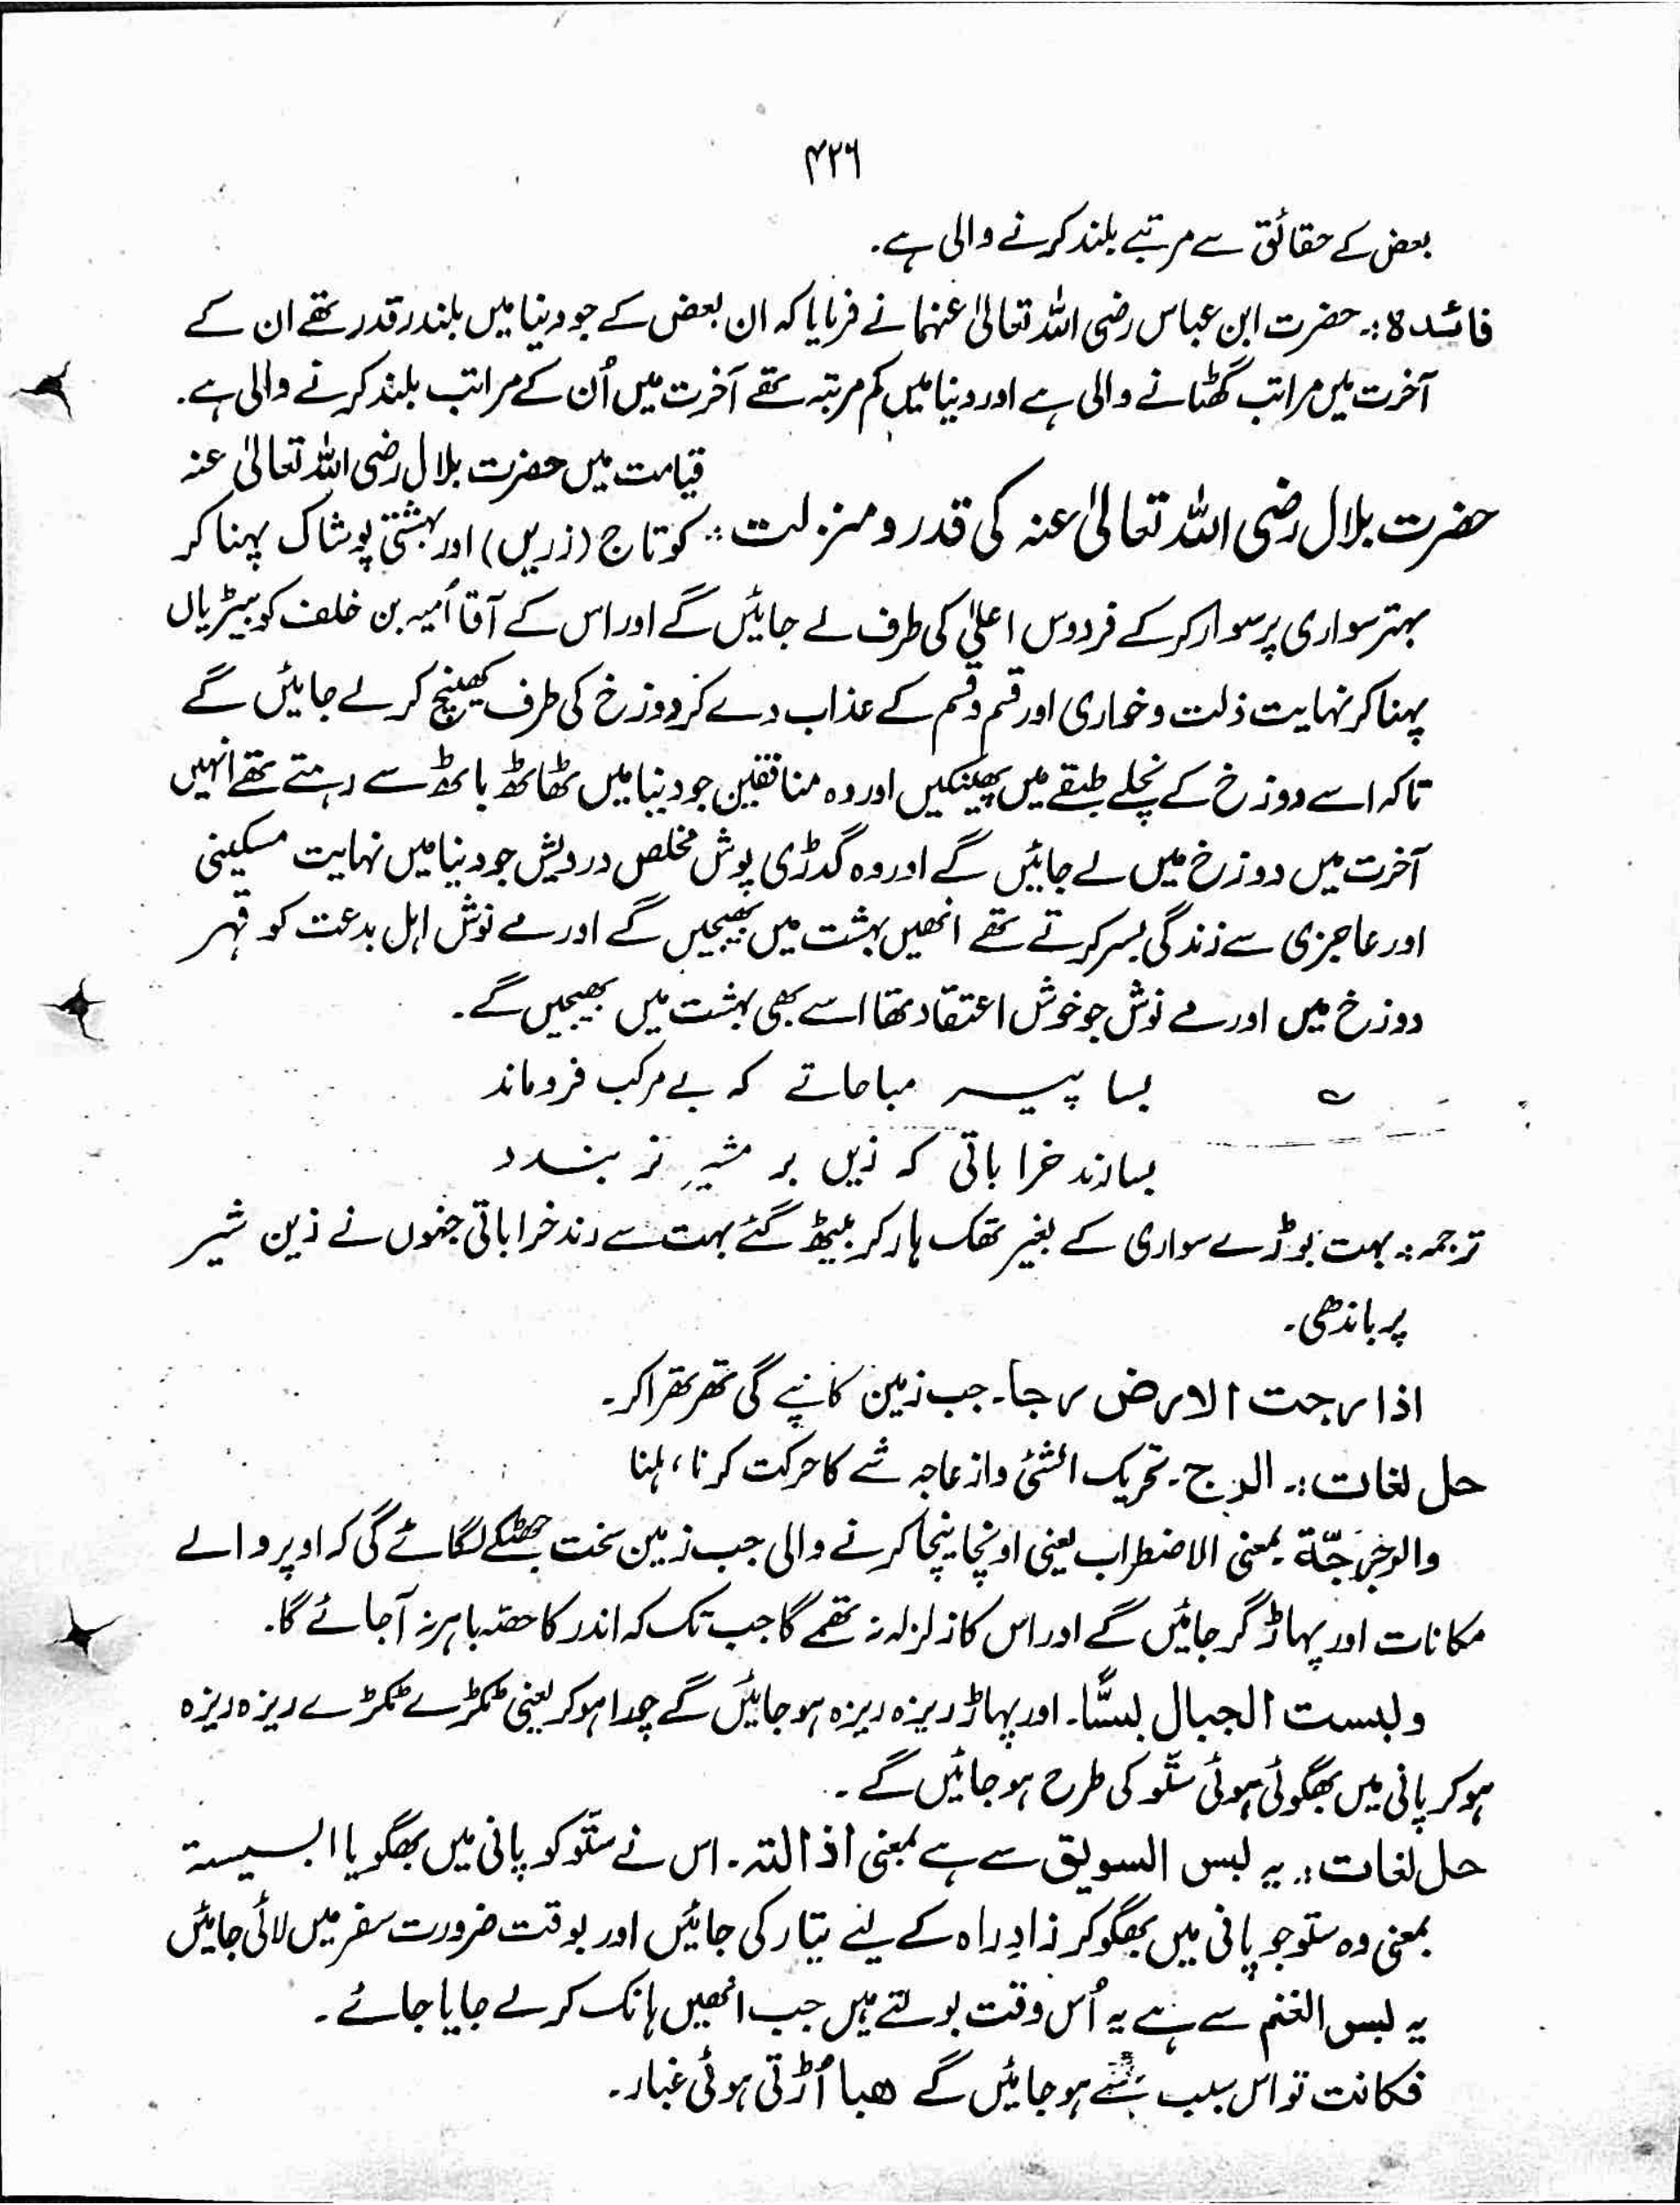 ۴۲۶
بعض کے حقائق سے مرتبے بلند کرنے والی ہے۔
فائدہ :۔ حضرت ابن عباس رضی اللہ تعالیٰ عنہما نے فرمایا کہ ان بعض کے جو دنیا میں بلند رقدر تھے ان کے
آخرت میں مراتب گھٹانے والی ہے اور دنیا میں کم مرتبہ تھے آخرت میں اُن کے مراتب بلند کرنے والی ہے۔
قیامت میں حضرت بلال رضی اللہ تعالیٰ عنہ
حضرت بلال رضی اللہ تعالیٰ عنہ کی قدر و منزلت :۔ کو تاج (زریں) اور بہشتی پوشاک پہنا کر
بہتر سواری پر سوار کر کے فردوس اعلیٰ کی طرف لے جائیں گے اور اس کے آقا اُمیہ بن خلف کو بیڑیاں
پہنا کر نہایت ذلت و خواری اور قسم و قسم کے عذاب دے کر دوزخ کی طرف کھینچ کر لے جائیں گے
تاکہ اسے دوزخ کے نچلے طبقے میں پھینکیں اور وہ منافقین جو دنیا میں ٹھاٹھ باٹھ سے رہتے تھے انہیں
آخرت میں دوزخ میں لے جائیں گے اور وہ گدڑی پوش مخلص درویش جو دنیا میں نہایت مسکینی
اور عاجزی سے زندگی بسر کرتے تھے انھیں بہشت میں بھیجیں گے اور مے نوش اہل بدعت کو قہر
دوزخ میں اور مے نوش جو خوش اعتقاد تھا اسے بھی بہشت میں بھیجیں گے۔
بسا پیر مباحاتے کہ بے مرکب فروماند
بسا رند خراباتی کہ زیں بر شیرِ نر بندد
ترجمہ :۔ بہت بوڑے سواری کے بغیر تھک ہار کر بیٹھ گئے بہت سے رند خراباتی جنہوں نے ذین شیر
پر باندھی۔
اذا رجت الارض رجا۔ جب زمین کانپے گی تھرتھرا کر۔
حل لغات :۔ الرج۔ تحریک الشئی وازعاجہ شے کا حرکت کرنا، ہلنا
والرجرجّۃ بمعنی الاضطراب یعنی اونچا نیچا کرنے والی جب زمین سخت جھٹکے لگائے گی کہ اوپر والے
مکانات اور پہاڑ گر جائیں گے اور اس کا زلزلہ نہ تھمے گا جب تک کہ اندر کا حصہ باہر نہ آ جائے گا۔
وبست الجبال بسًّا۔ اور پہاڑ ریزہ ریزہ ہو جائیں گے چورا ہو کر یعنی ٹکڑے ٹکڑے ریزہ ریزہ
ہو کر پانی میں بھگوئی ہوئی ستّو کی طرح ہو جائیں گے۔
حل لغات :۔ یہ بس السویق سے ہے بمعنی اذا لتہ۔ اس نے ستّو کو پانی میں بھگویا البسیسۃ
بمعنی وہ ستو جو پانی میں بھگو کر زادِ راہ کے لیے تیار کی جائیں اور بوقت ضرورت سفر میں لائی جائیں
یہ بس الغنم سے ہے یہ اُس وقت بولتے ہیں جب انھیں ہانک کر لے جایا جائے۔
فکانت تو اس سبب سے ہو جائیں گے ھبا اُڑتی ہوئی غبار۔